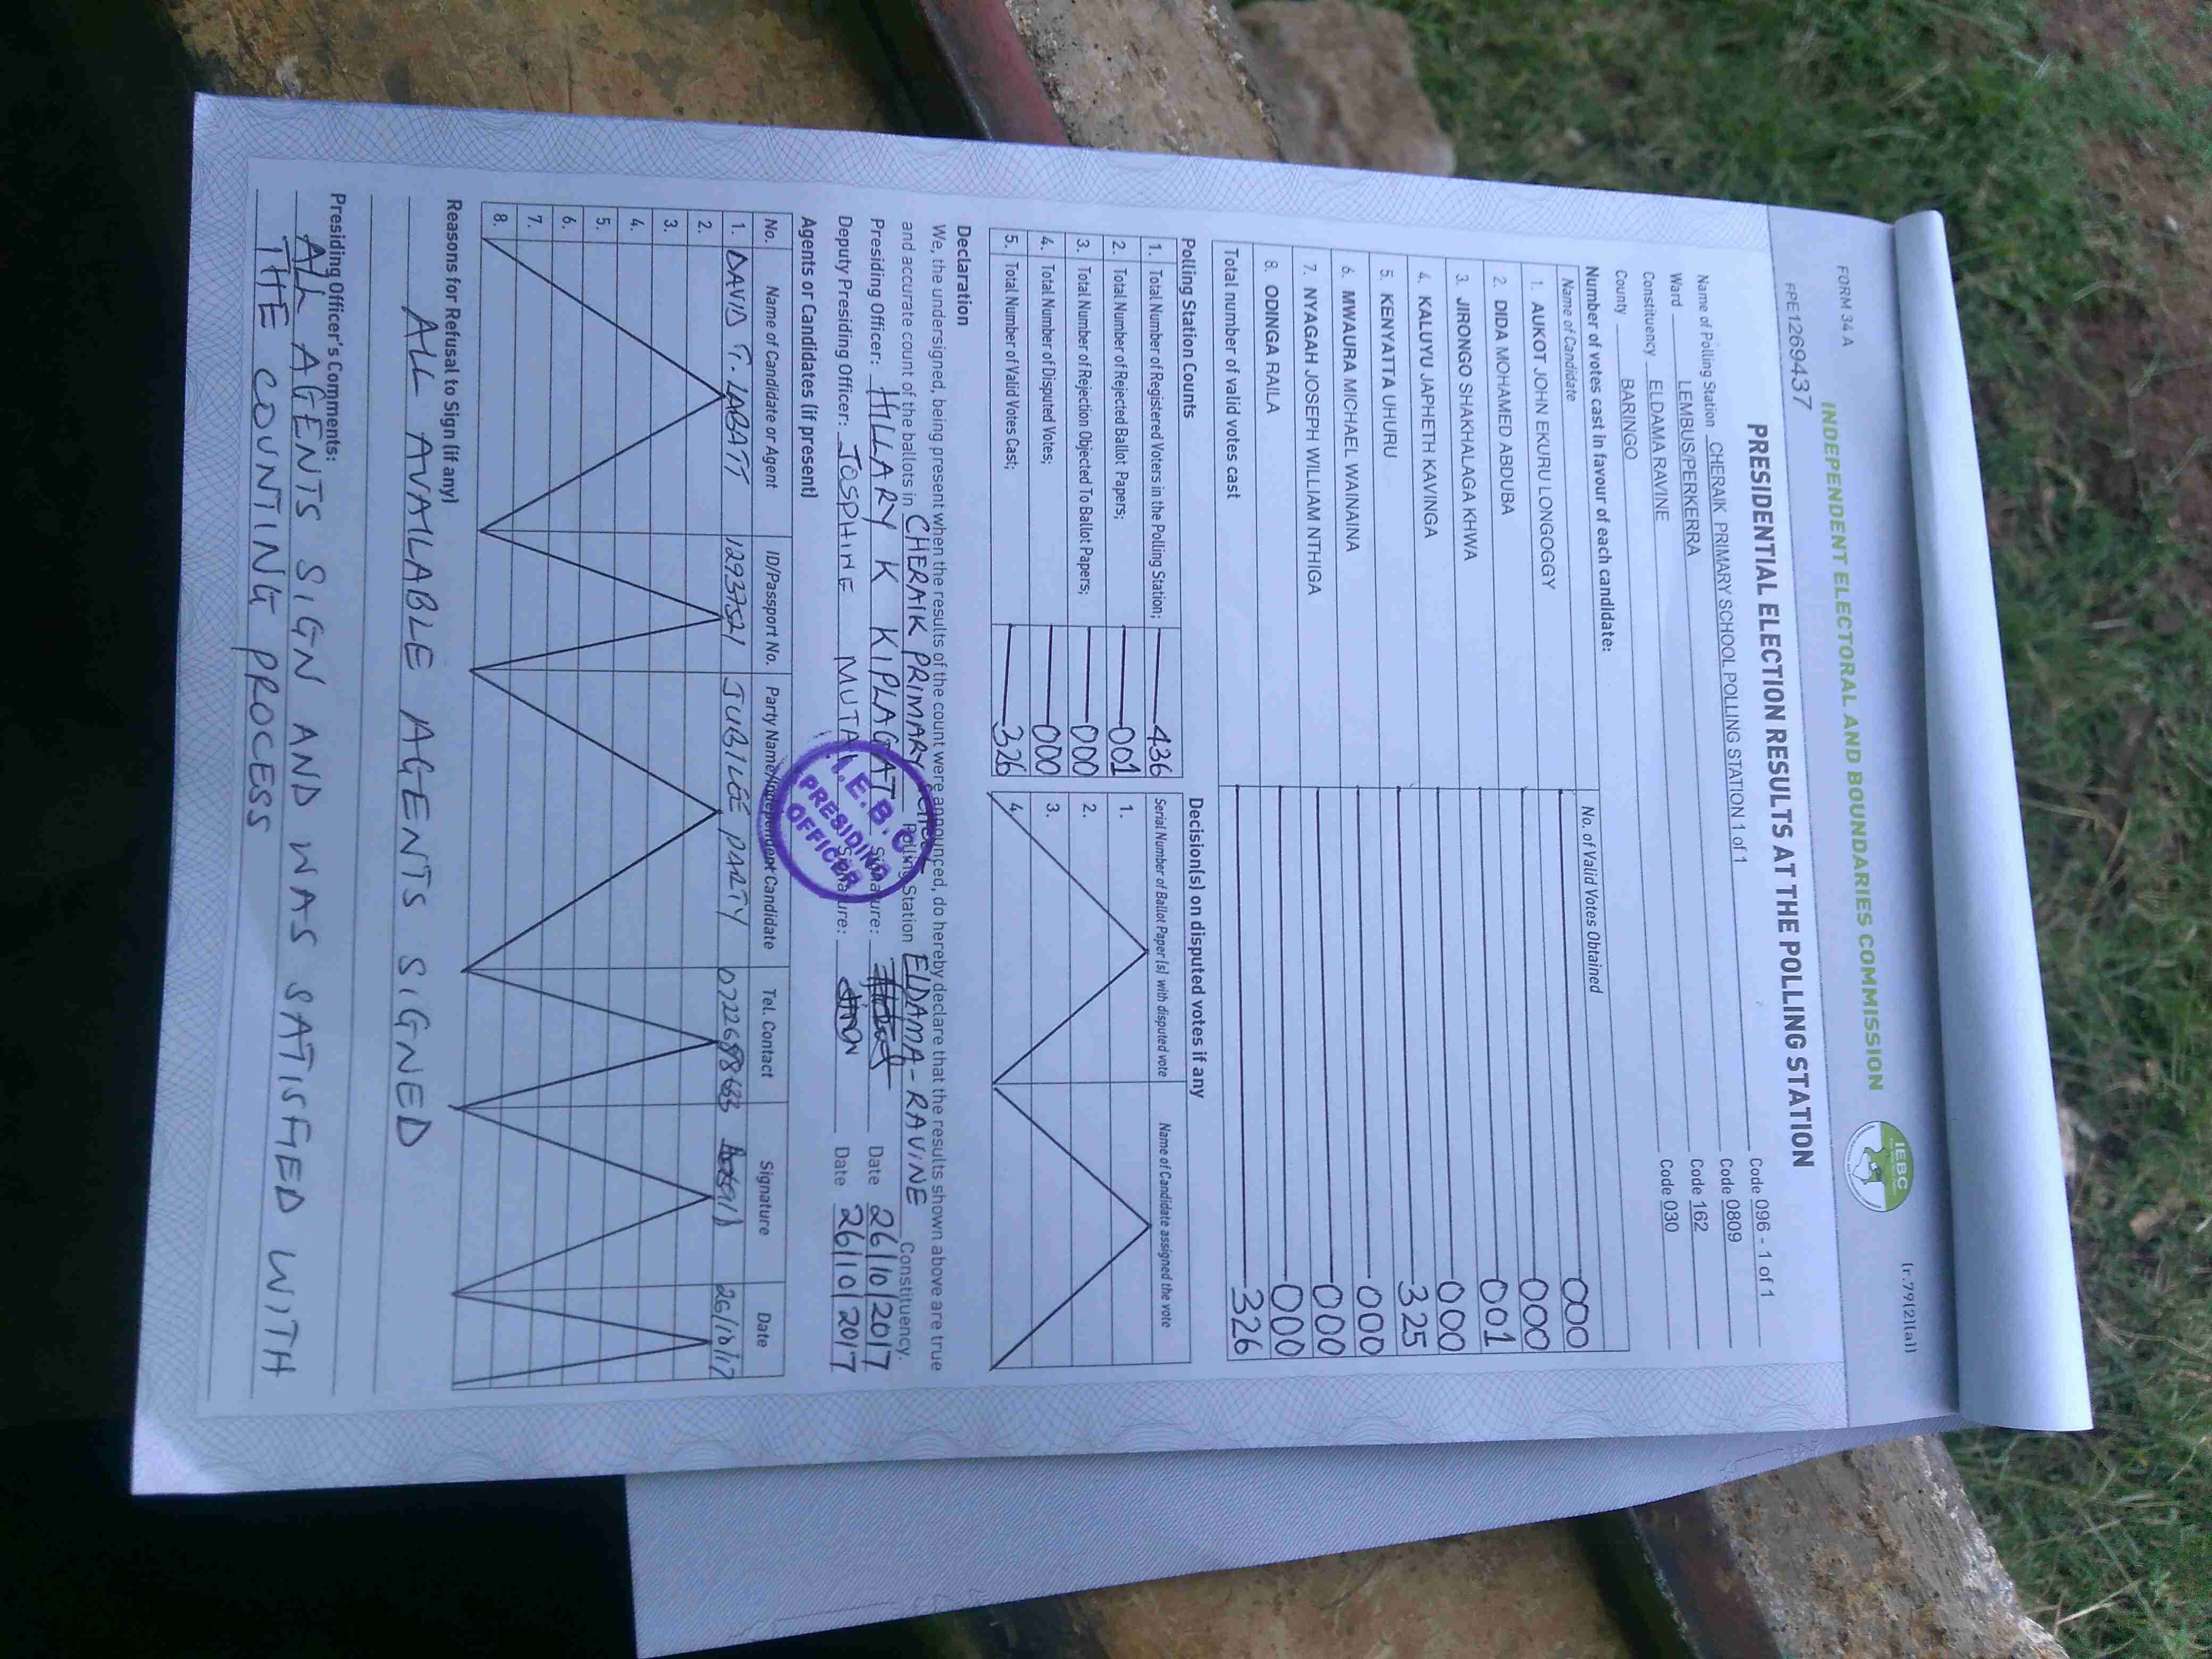 FORM 34 A
(r.79(2)(a))
INDEPENDENT ELECTORAL AND BOUNDARIES COMMISSION
IEBC
FPE1269437
PRESIDENTIAL ELECTION RESULTS AT THE POLLING STATION
Name of Polling Station CHERAIK PRIMARY SCHOOL POLLING STATION 1 of 1 Code 096 - 1 of 1
Ward LEMBUS/PERKERRA Code 0809
Constituency ELDAMA RAVINE Code 162
County BARINGO Code 030
Number of votes cast in favour of each candidate:
Name of Candidate No. of Valid Votes Obtained
1. AUKOT JOHN EKURU LONGOGGY 000
2. DIDA MOHAMED ABDUBA 000
3. JIRONGO SHAKHALAGA KHWA 001
4. KALUYU JAPHETH KAVINGA 000
5. KENYATTA UHURU 325
6. MWAURA MICHAEL WAINAINA 000
7. NYAGAH JOSEPH WILLIAM NTHIGA 000
8. ODINGA RAILA 000
Total number of valid votes cast 326
Polling Station Counts
1. Total Number of Registered Voters in the Polling Station; 436
2. Total Number of Rejected Ballot Papers; 001
3. Total Number of Rejection Objected To Ballot Papers; 000
4. Total Number of Disputed Votes; 000
5. Total Number of Valid Votes Cast; 326
Decision(s) on disputed votes if any
Serial Number of Ballot Paper(s) with disputed vote Name of Candidate assigned the vote
1.
2.
3.
4.
Declaration
We, the undersigned, being present when the results of the count were announced, do hereby declare that the results shown above are true
and accurate count of the ballots in CHERAIK PRIMARY Polling Station ELDAMA-RAVINE Constituency.
Presiding Officer: HILLARY K KIPLAGAT Signature: Date 26/10/2017
Deputy Presiding Officer: JOSPHINE MUTAI Signature: Date 26/10/2017
I.E.B.C
PRESIDING
OFFICER
Agents or Candidates (if present)
No. Name of Candidate or Agent ID/Passport No. Party Name/Independent Candidate Tel. Contact Signature Date
1. DAVID LABATT 12937521 JUBILEE PARTY 26/10/17
2.
3.
4.
5.
6.
7.
8.
Reasons for Refusal to Sign (if any)
ALL AVAILABLE AGENTS SIGNED
Presiding Officer's Comments:
ALL AGENTS SIGN AND WAS SATISFIED WITH
THE COUNTING PROCESS